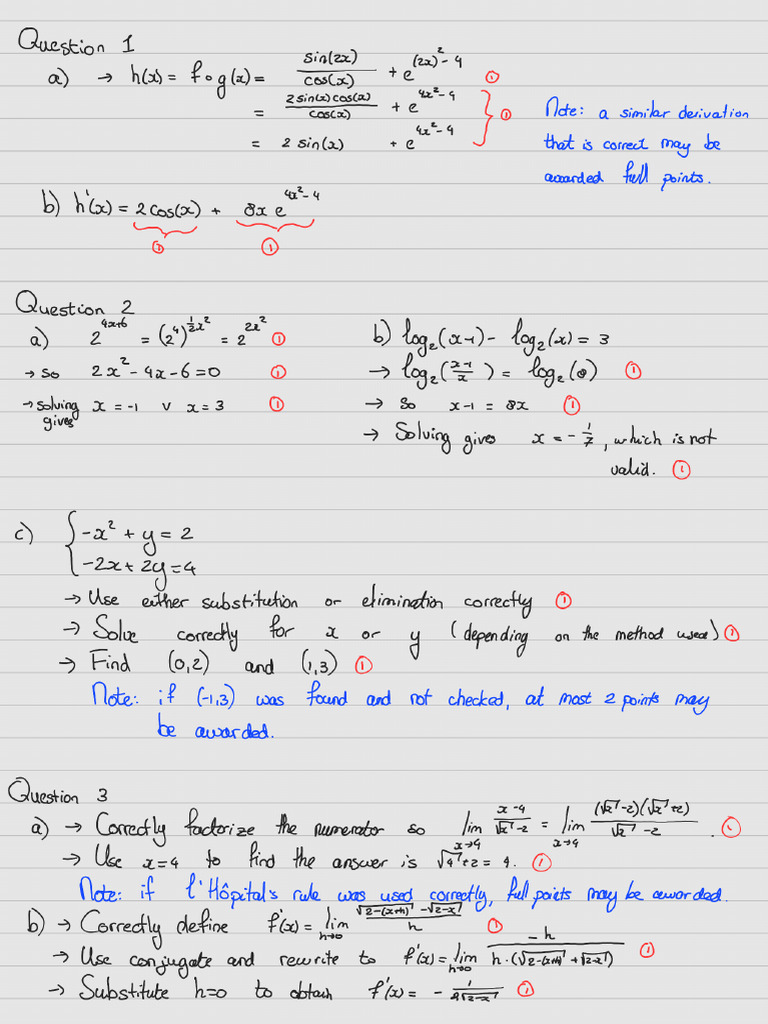 Question 1
a) → h(x) = f ∘ g(x) = sin(2x)/cos(x) + e^((2x)²-4) ①
= 2sin(x)cos(x)/cos(x) + e^(4x²-4)
= 2 sin(x) + e^(4x²-4) } ①
Note: a similar derivation
that is correct may be
awarded full points.
b) h'(x) = 2cos(x) + 8x e^(4x²-4)
① ①
Question 2
a) 2^(4x+6) = (2⁴)^(½x²) = 2^(2x²) ①
→ so 2x²-4x-6=0 ①
→ solving gives x = -1 v x = 3 ①
b) log₂(x-1) - log₂(x) = 3
→ log₂((x-1)/x) = log₂(8) ①
→ so x-1 = 8x ①
→ Solving gives x = -1/7, which is not
valid. ①
c) { -x² + y = 2
-2x + 2y = 4
→ Use either substitution or elimination correctly ①
→ Solve correctly for x or y (depending on the method used) ①
→ Find (0,2) and (1,3) ①
Note: if (-1,3) was found and not checked, at most 2 points may
be awarded.
Question 3
a) → Correctly factorize the numerator so lim x→4 (x-4)/(√x-2) = lim x→4 (√x-2)(√x+2)/(√x-2). ①
→ Use x=4 to find the answer is √4+2 = 4. ①
Note: if l'Hôpital's rule was used correctly, full points may be awarded.
b) → Correctly define f'(x) = lim h→0 (√(2-(x+h)) - √(2-x))/h ①
→ Use conjugate and rewrite to f'(x) = lim h→0 -h/(h·(√(2-(x+h)) + √(2-x))) ①
→ Substitute h=0 to obtain f'(x) = -1/(2√(2-x)) ①